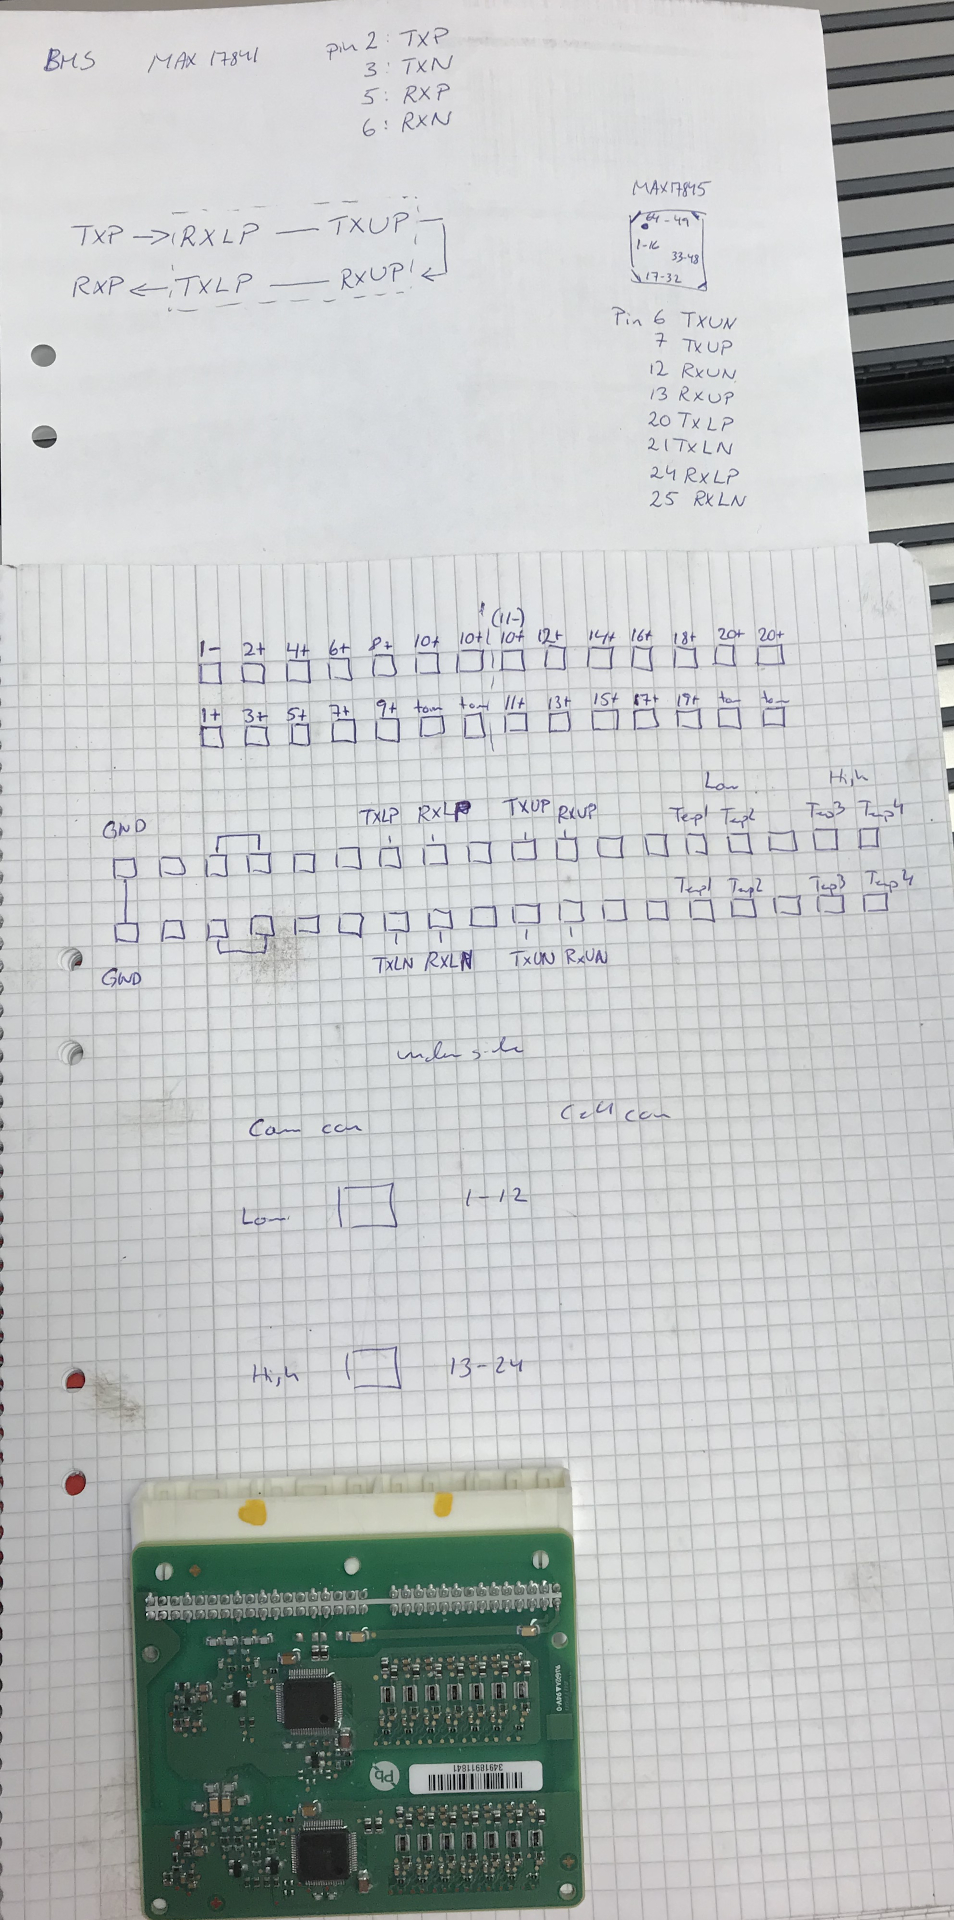 BMS MAX 17841 pin 2: TXP
3: TXN
5: RXP
6: RXN
MAX17845
64-49
1-16
33-48
17-32
TXP → RXLP — TXUP
RXP ← TXLP — RXUP
Pin 6 TXUN
7 TXUP
12 RXUN
13 RXUP
20 TXLP
21 TXLN
24 RXLP
25 RXLN
(11-)
1- 2+ 4+ 6+ 8+ 10+ 10+ 10+ 12+ 14+ 16+ 18+ 20+ 20+
1+ 3+ 5+ 7+ 9+ tom tom 11+ 13+ 15+ 17+ 19+ tom tom
Low High
GND TXLP RXLP TXUP RXUP Temp1 Temp2 Temp3 Temp4
Temp1 Temp2 Temp3 Temp4
GND TXLN RXLN TXUN RXUN
underside
Com con Cell con
Low 1-12
High 13-24
Pb